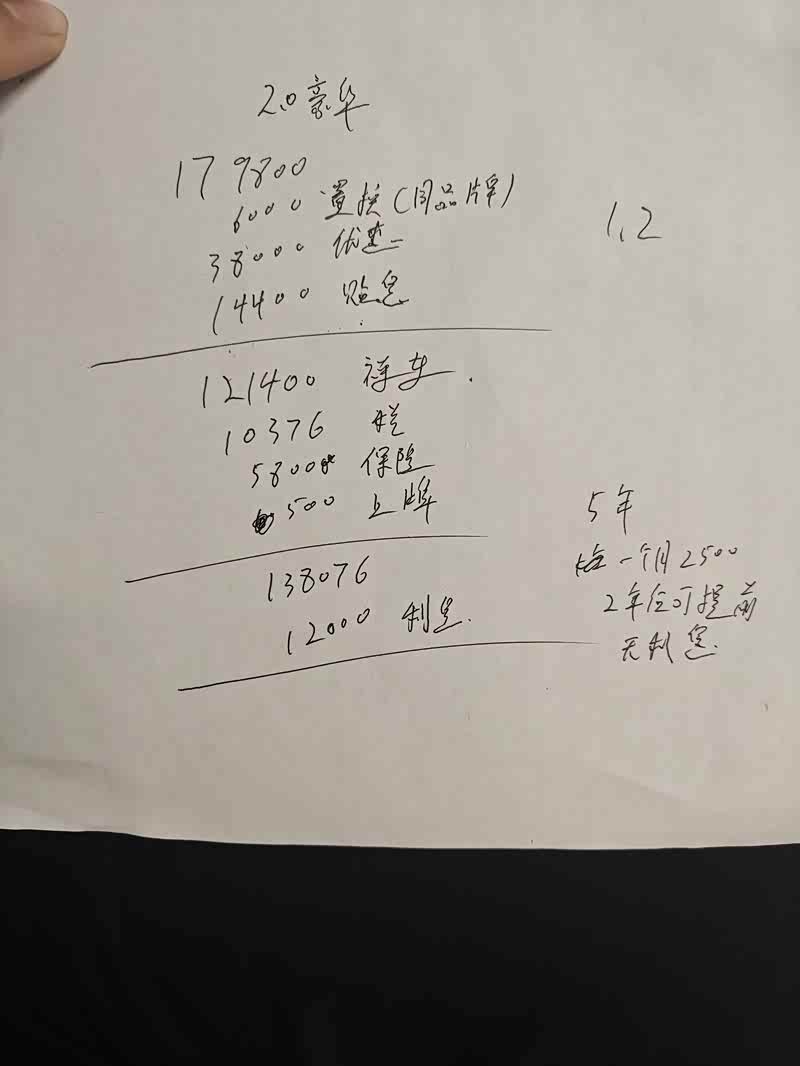 2.0豪华
179800
6000 置换(同品牌)
38000 优惠
14400 贴息
1.2
121400 裸车.
10376 税
5800 保险
500 上牌
138076
12000 利息.
5年
一个月2500
2年后可提前
无利息.